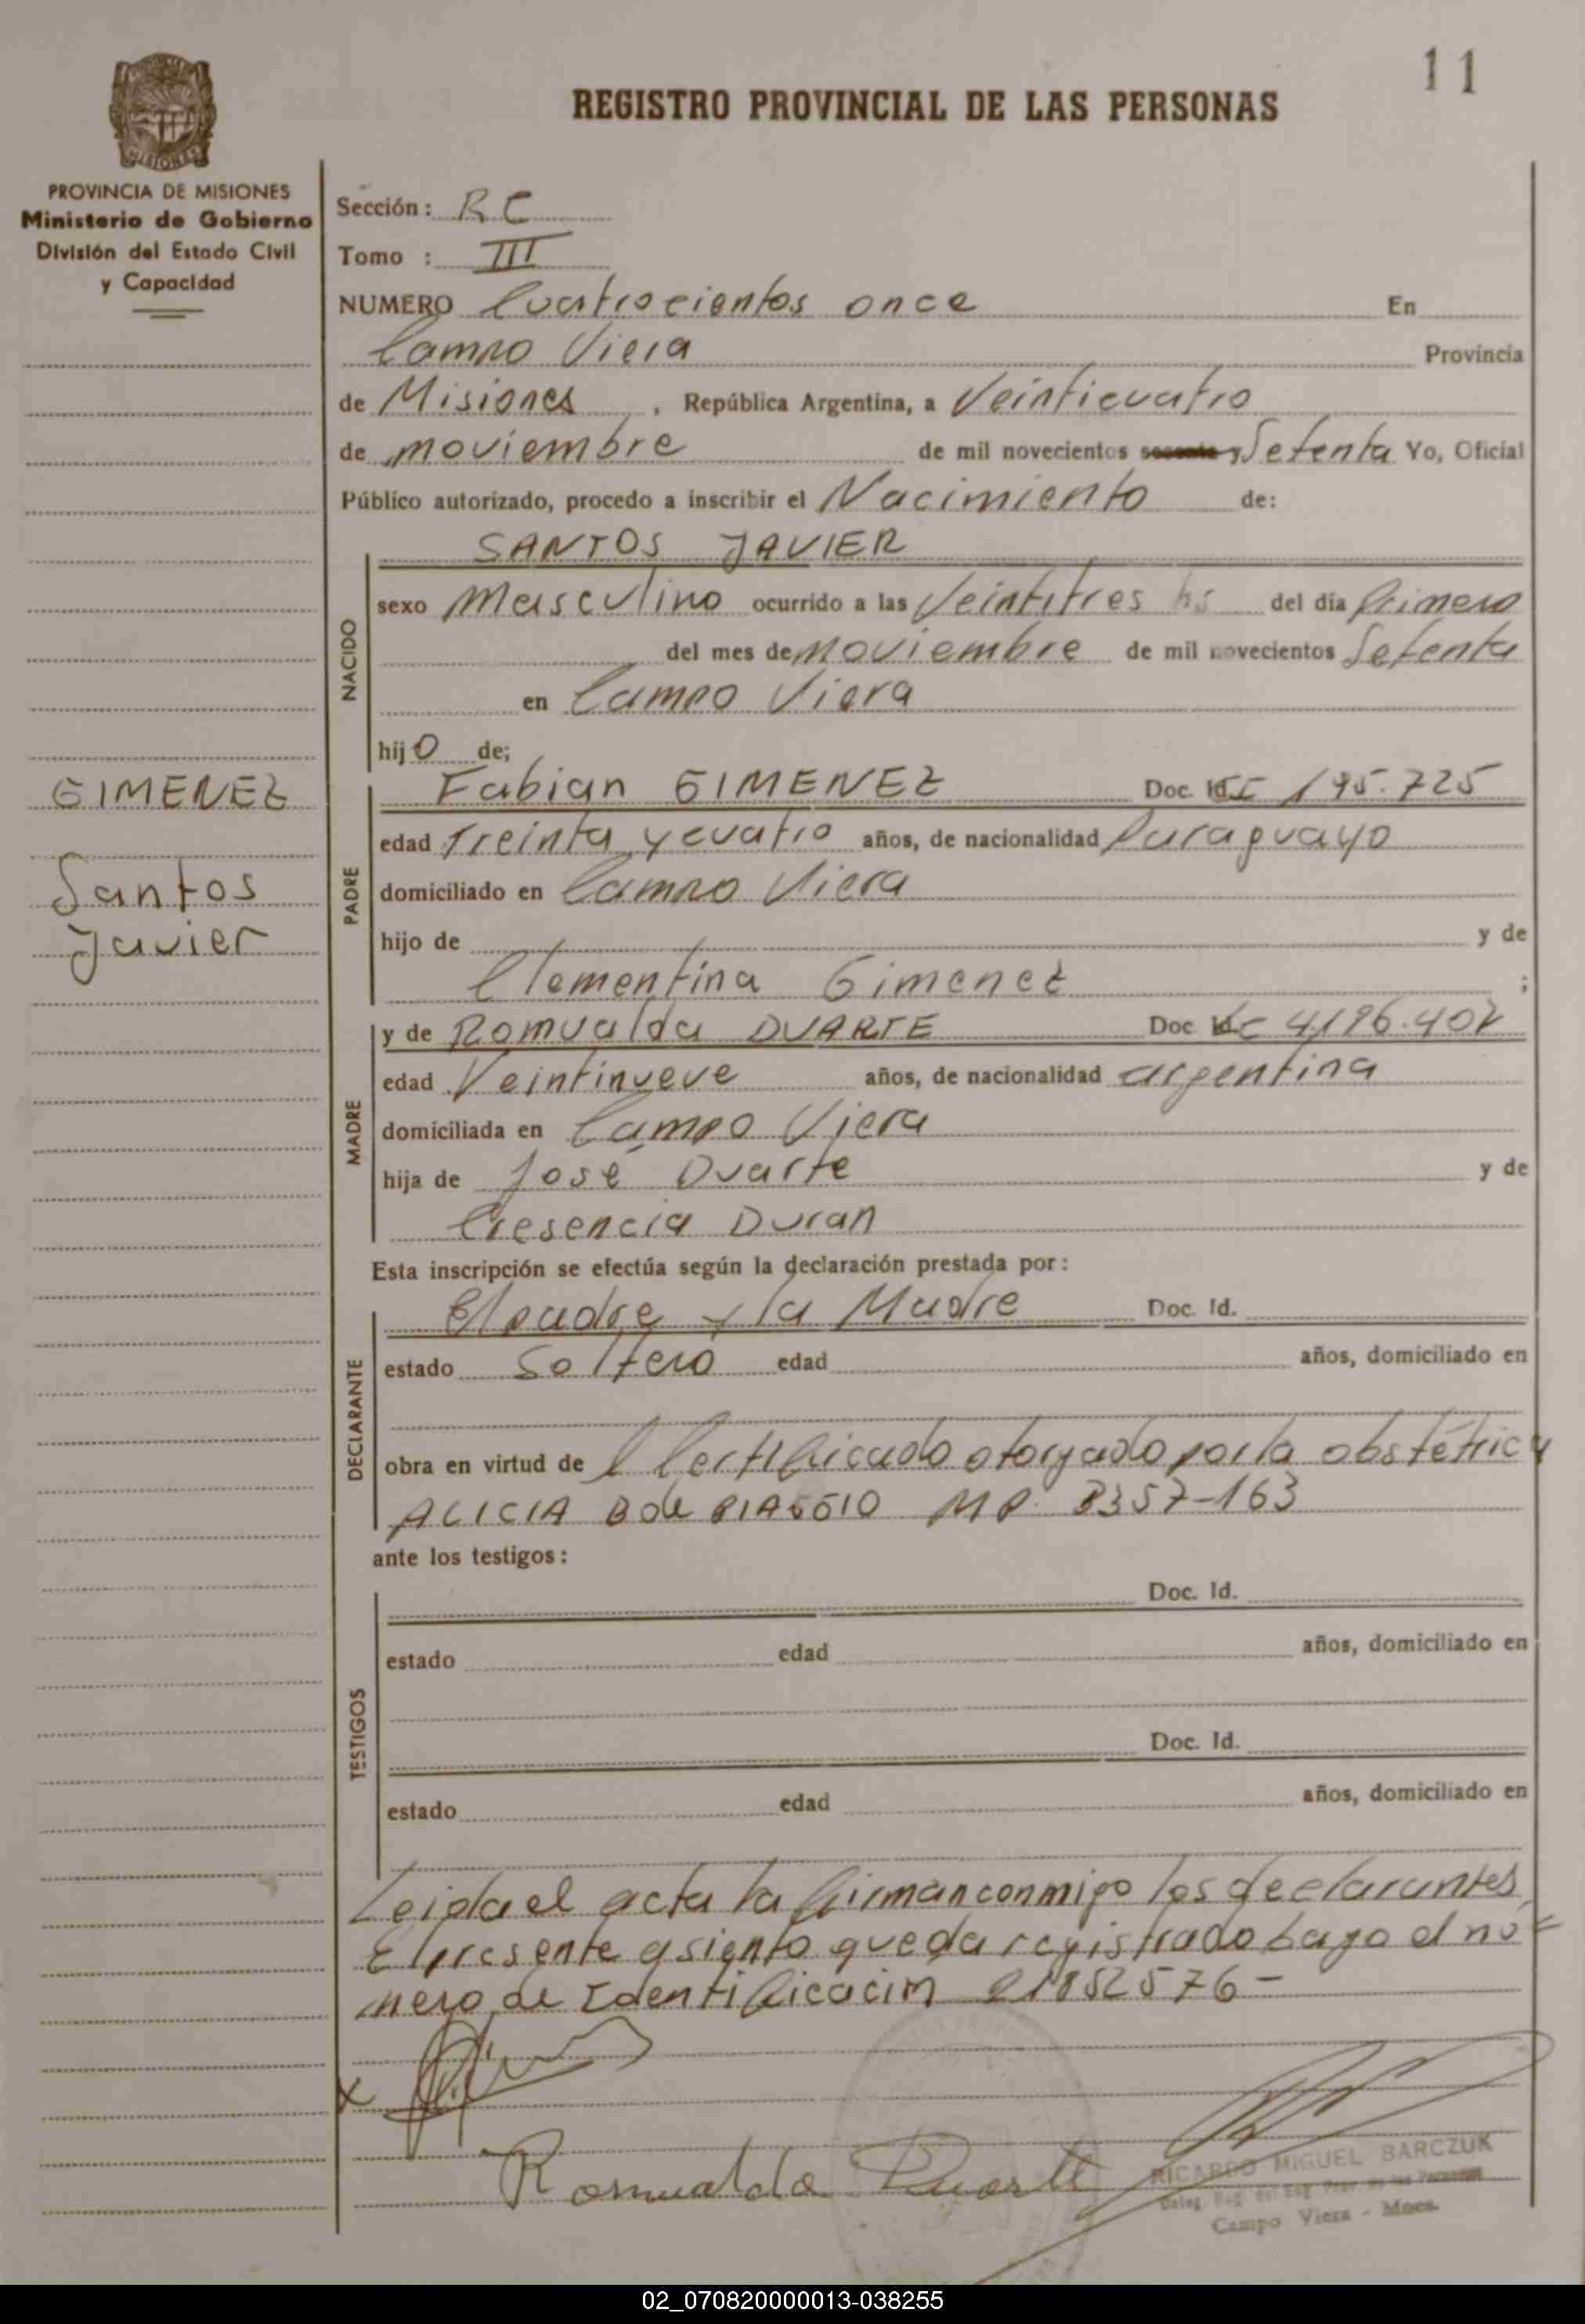 11
REGISTRO PROVINCIAL DE LAS PERSONAS
MISIONES
PROVINCIA DE MISIONES
Ministerio de Gobierno
División del Estado Civil
y Capacidad
Sección: RC
Tomo : III
NUMERO Cuatrocientos once En
Campo Viera Provincia
de Misiones, República Argentina, a Veinticuatro
de noviembre de mil novecientos Setenta Yo, Oficial
Público autorizado, procedo a inscribir el Nacimiento de:
NACIDO
SANTOS JAVIER
sexo Masculino ocurrido a las Veintitres hs del día Primero
del mes de noviembre de mil novecientos Setenta
en Campo Viera
hijo de;
GIMENEZ
Santos
Javier
PADRE
Fabian GIMENEZ Doc. Id. 195.725
edad Treinta y cuatro años, de nacionalidad Paraguayo
domiciliado en Campo Viera
hijo de y de
Clementina Gimenez ;
MADRE
y de Romualda DUARTE Doc 4.196.402
edad Veintinueve años, de nacionalidad argentina
domiciliada en Campo Viera
hija de José Duarte y de
Cresencia Duran
Esta inscripción se efectúa según la declaración prestada por:
DECLARANTE
El padre y la Madre Doc. Id.
estado Soltero edad años, domiciliado en
obra en virtud de l Certificado otorgado por la obstétrica
ALICIA B de MP. 3357-163
ante los testigos:
TESTIGOS
Doc. Id.
estado edad años, domiciliado en
Doc. Id.
estado edad años, domiciliado en
Leida el acta la firman conmigo los declarantes
El presente asiento queda registrado bajo el nú=
mero de Identificacin 21852576-
Romualda Duarte
RICARDO MIGUEL BARCZUK
Campo Viera - Mnes.
02_070820000013-038255